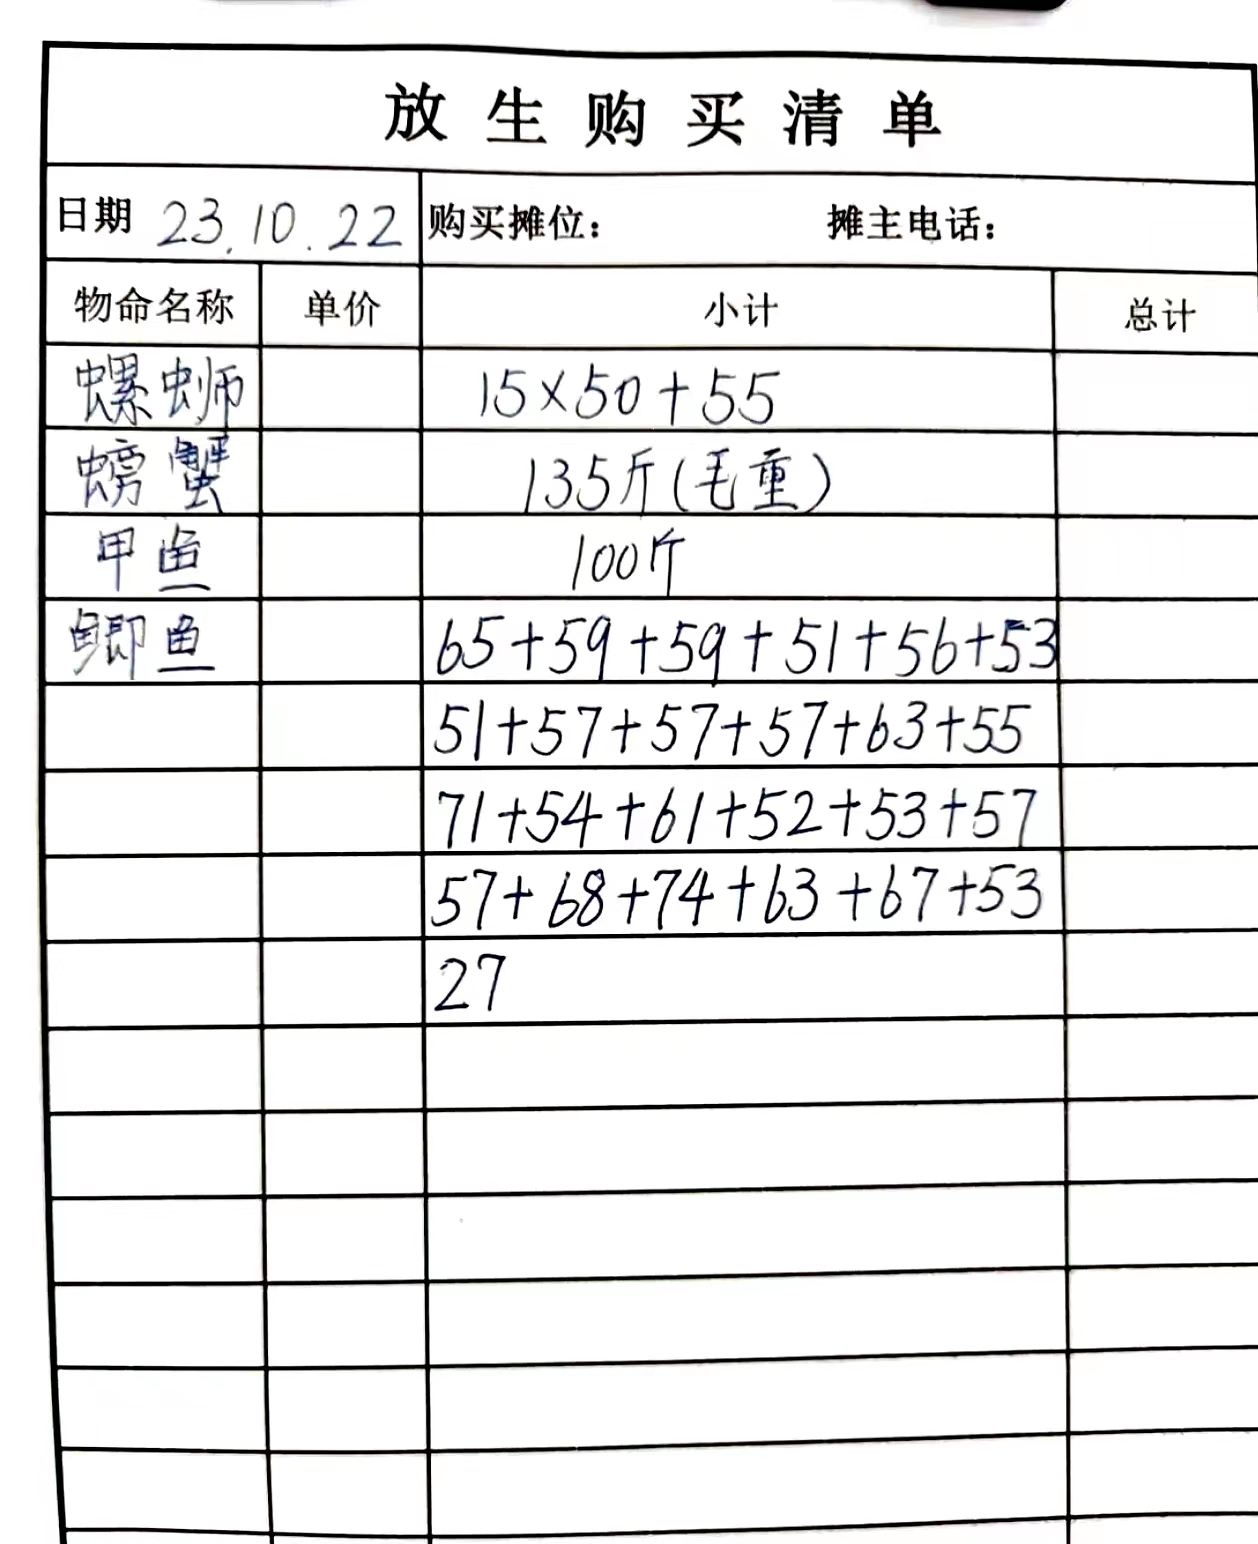 放生购买清单
日期 23.10.22 购买摊位： 摊主电话：
物命名称 单价 小计 总计
螺蛳 15×50+55
螃蟹 135斤(毛重)
甲鱼 100斤
鲫鱼 65+59+59+51+56+53
51+57+57+57+63+55
71+54+61+52+53+57
57+68+74+63+67+53
27